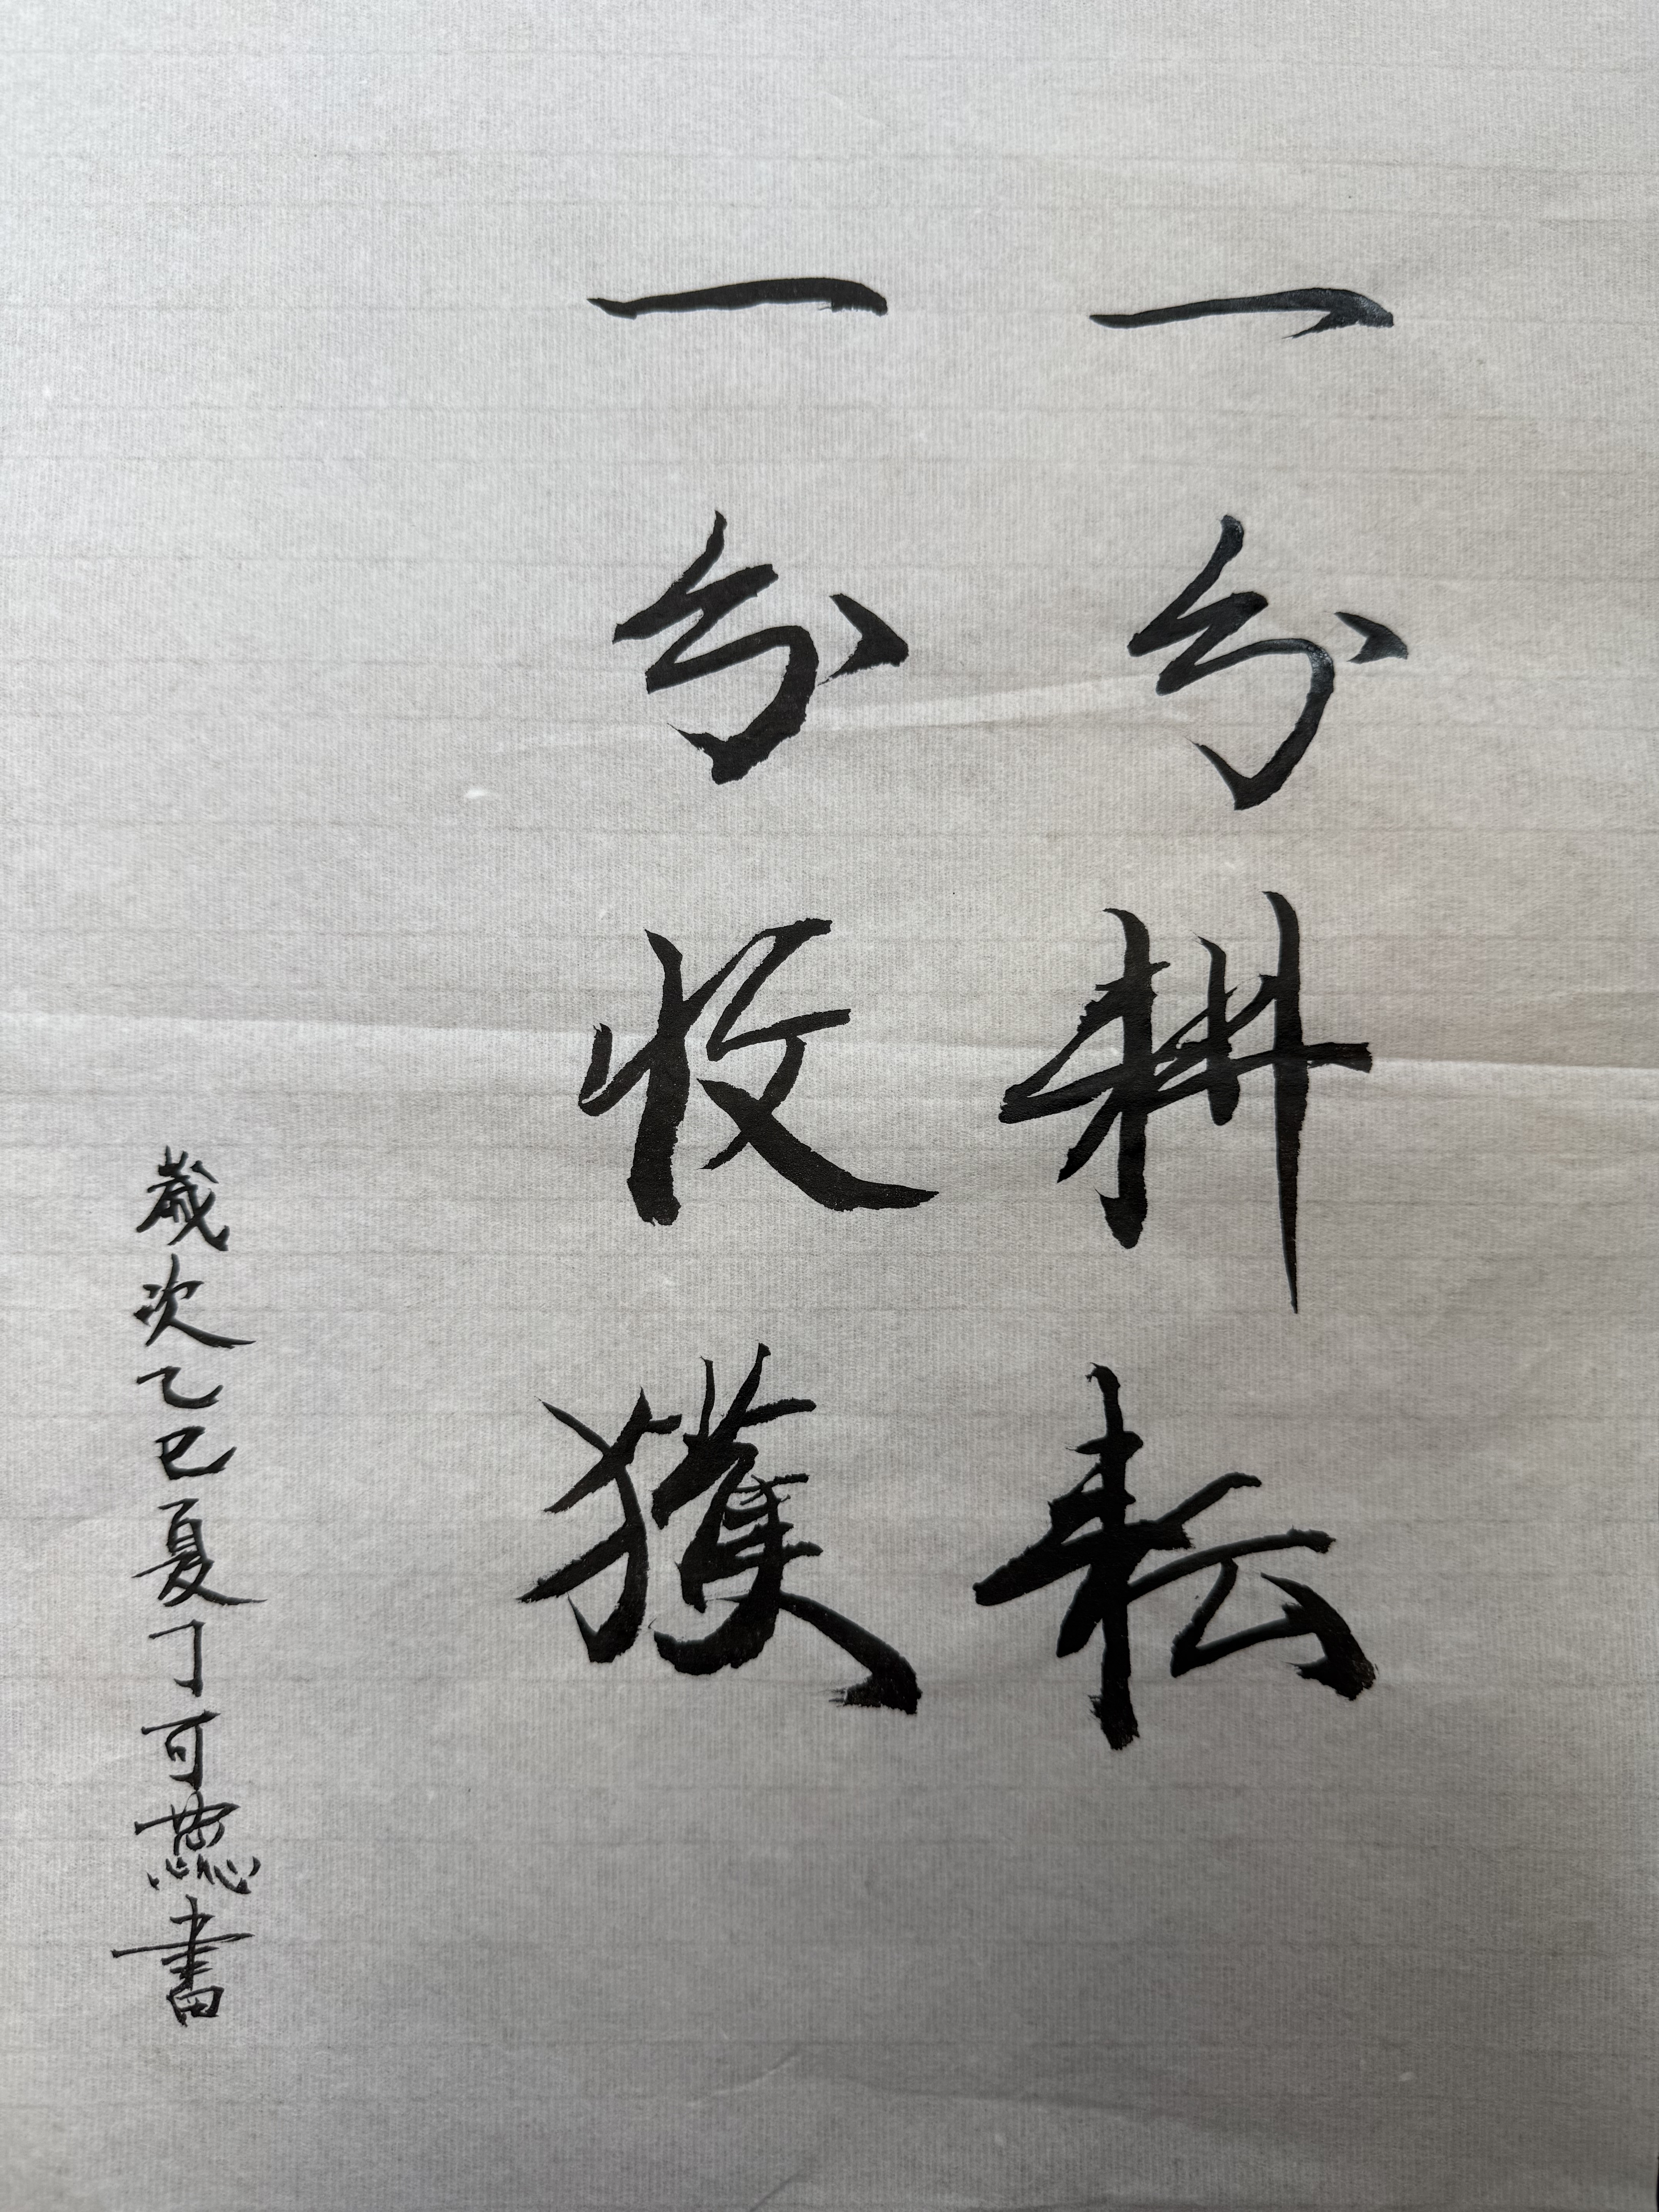 一分耕耘
一分收獲
歲次乙巳夏丁可聽書